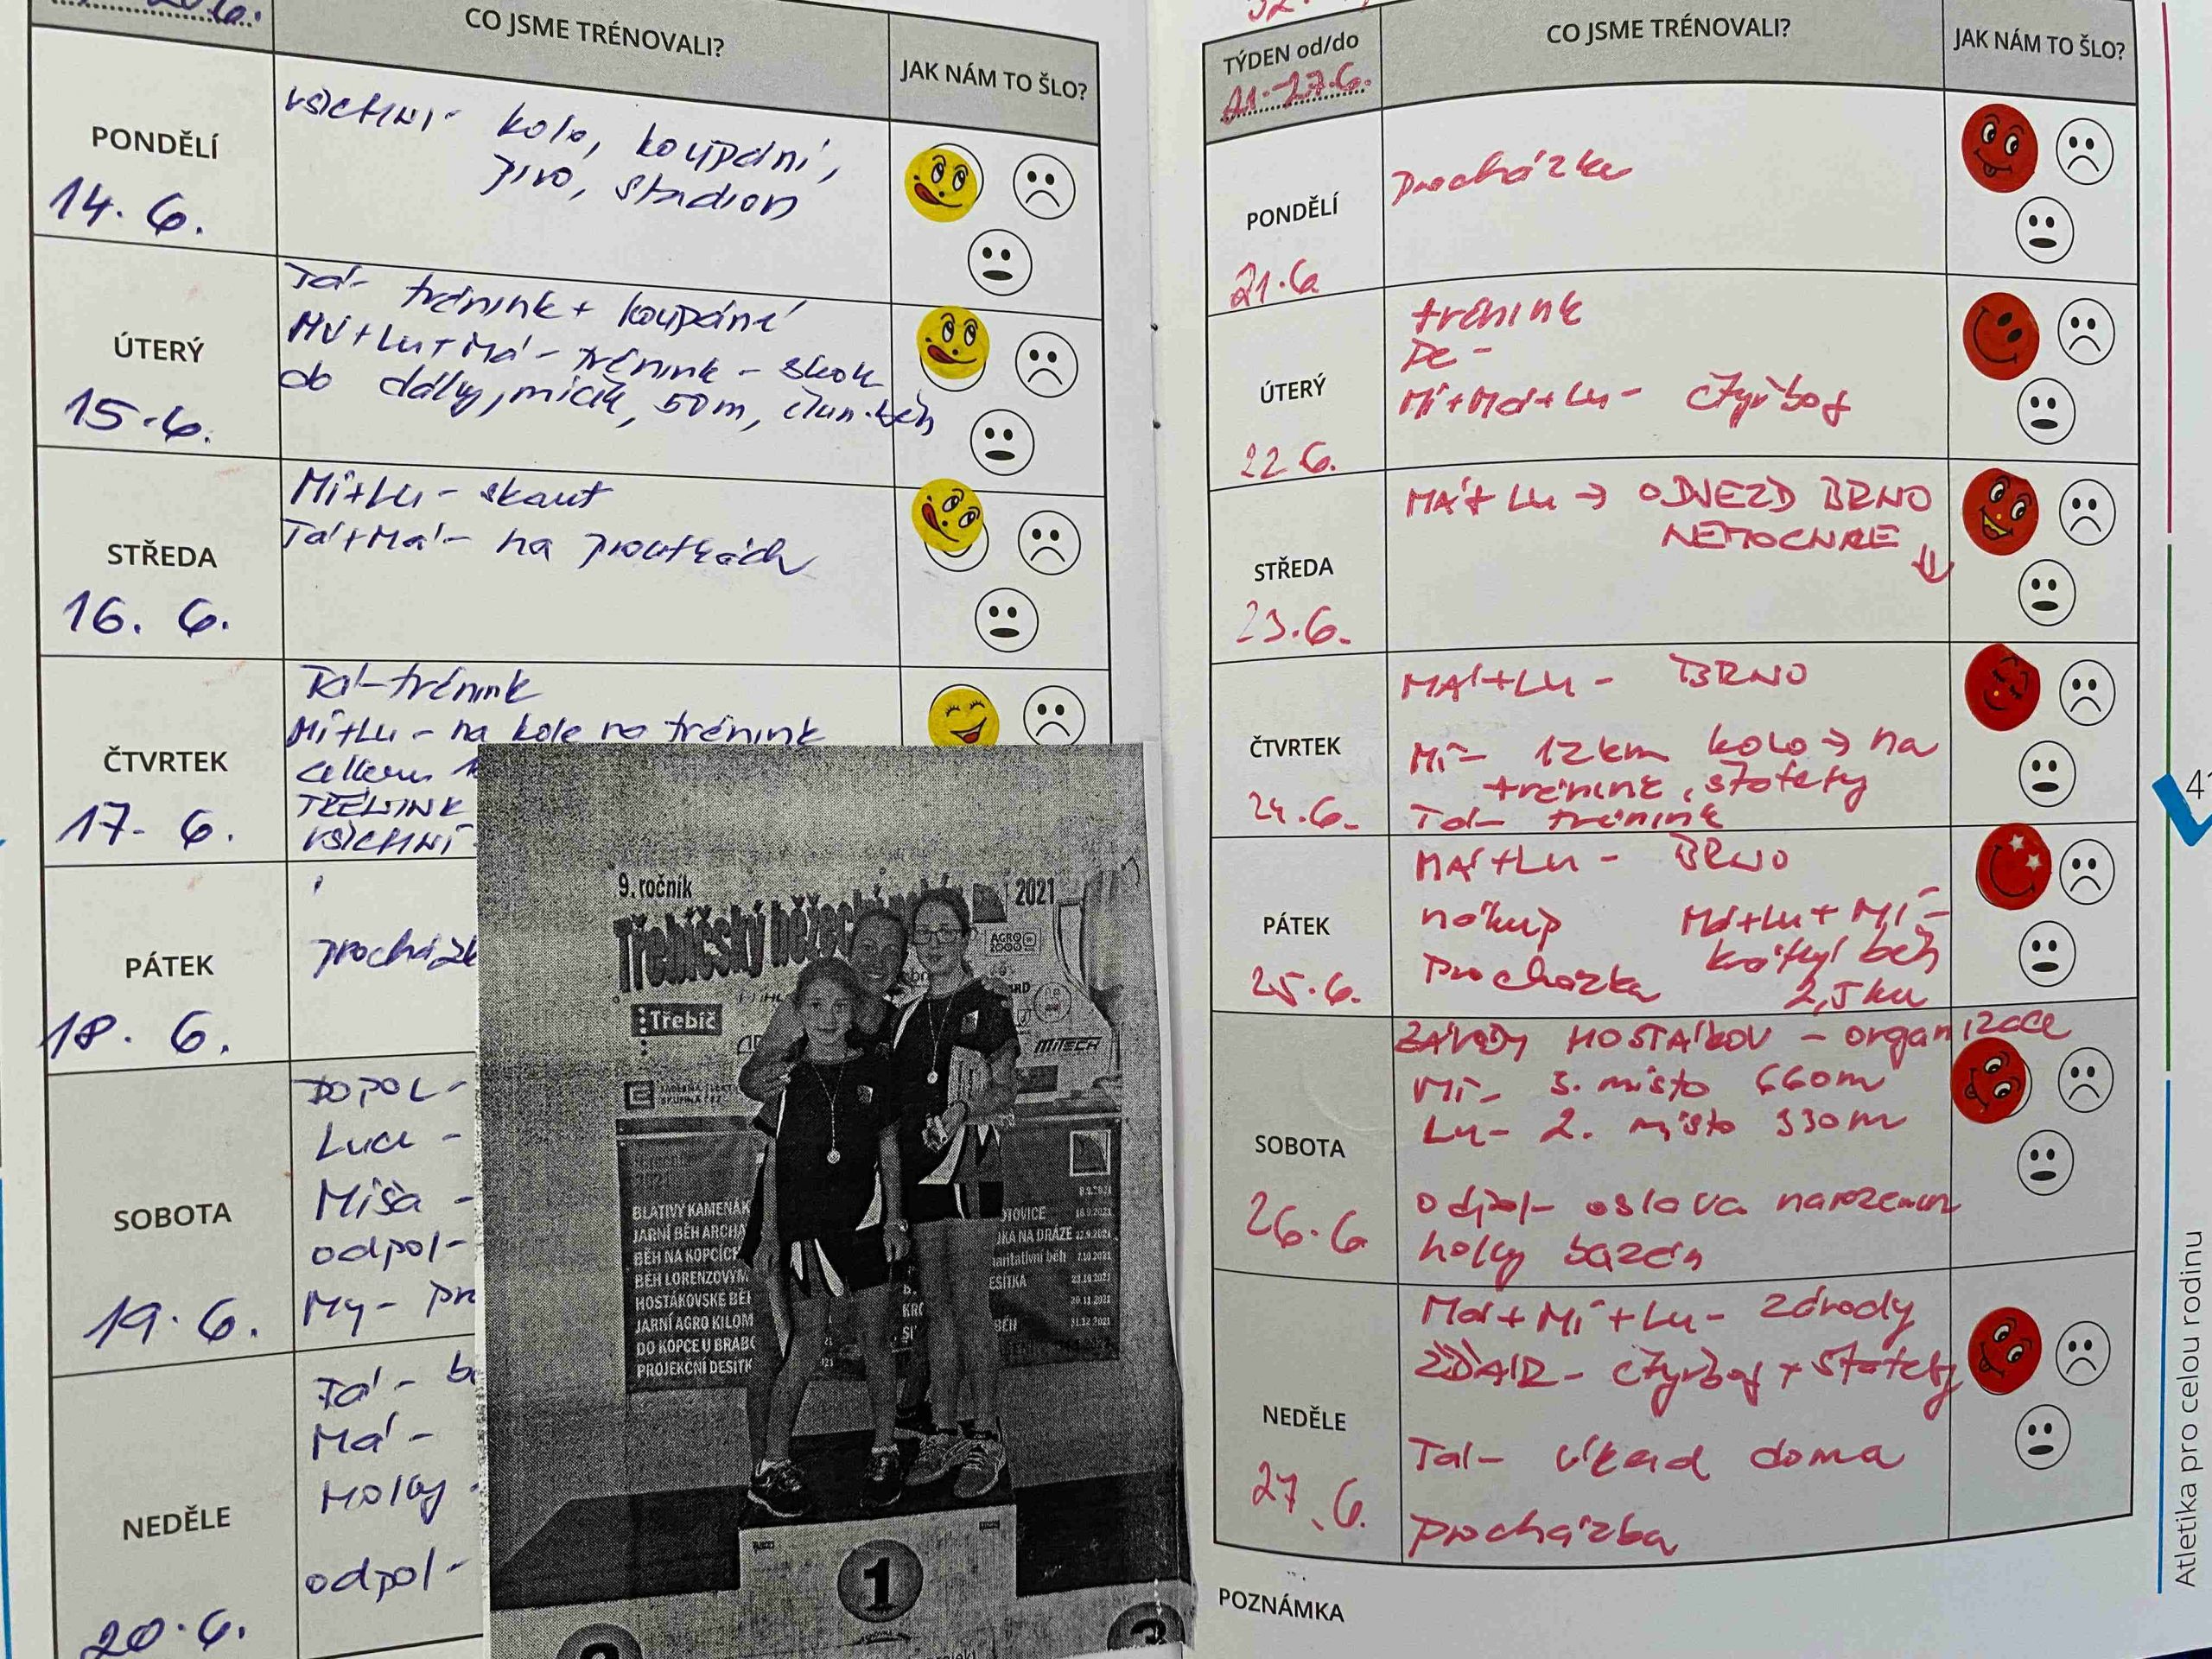 CO JSME TRÉNOVALI?
JAK NÁM TO ŠLO?
PONDĚLÍ
14. 6.
VŠICHNI - kolo, koupání,
pivo, stadion
ÚTERÝ
15. 6.
Tá - trénink + koupání
Mí + Lu + Má - trénink - skok
do dálky, míček, 50m, člun. běh
STŘEDA
16. 6.
Mí + Lu - skaut
Tá + Má - na
ČTVRTEK
17. 6.
Tá - trénink
Mí + Lu - na kole na trénink
celkem 1
TRÉNINK
VŠICHNI
PÁTEK
18. 6.
procház
SOBOTA
19. 6.
DOPOL -
Luci -
Míša -
odpol -
My - pr
NEDĚLE
20. 6.
Tá - b
Má -
Holky -
odpol -
9. ročník
2021
Třebíčský běžec
AGRO 2000
Třebíč
MITECH
BLATIVÝ KAMEŇÁK
JARNÍ BĚH ARCHA
BĚH NA KOPCÍCH
BĚH LORENZOVÝM
HOSTÁKOVSKÉ BĚ
JARNÍ AGRO KILOM
DO KOPCE U BRABC
PROJEKČNÍ DESÍTK
OTOVICE
KA NA DRÁZE
aritativní běh
ESÍTKA
BĚH
1
2
3
TÝDEN od/do
21.-27.6.
CO JSME TRÉNOVALI?
JAK NÁM TO ŠLO?
PONDĚLÍ
21. 6
procházka
ÚTERÝ
22 6.
trénink
Mí + Má + Lu - čtyřboj
STŘEDA
23. 6.
MÁ + Lu → ODJEZD BRNO
NEMOCNICE ↓
ČTVRTEK
24. 6.
MÁ + Lu - BRNO
Mí - 12 km kolo → na
trénink, štafety
Tá - trénink
PÁTEK
25. 6.
MÁ + Lu - BRNO
nákup
procházka
Má + Lu + Mí -
běh
2,5 km
SOBOTA
26. 6
ZÁVODY HOSTÁKOV - organizace
Mí - 3. místo 660m
Lu - 2. místo 330m
Odpol - oslava narozenin
holky bazén
NEDĚLE
27. 6.
Má + Mí + Lu - závody
ŽĎÁR - čtyřboj + štafety
Tá - úklid doma
procházka
POZNÁMKA
Atletika pro celou rodinu